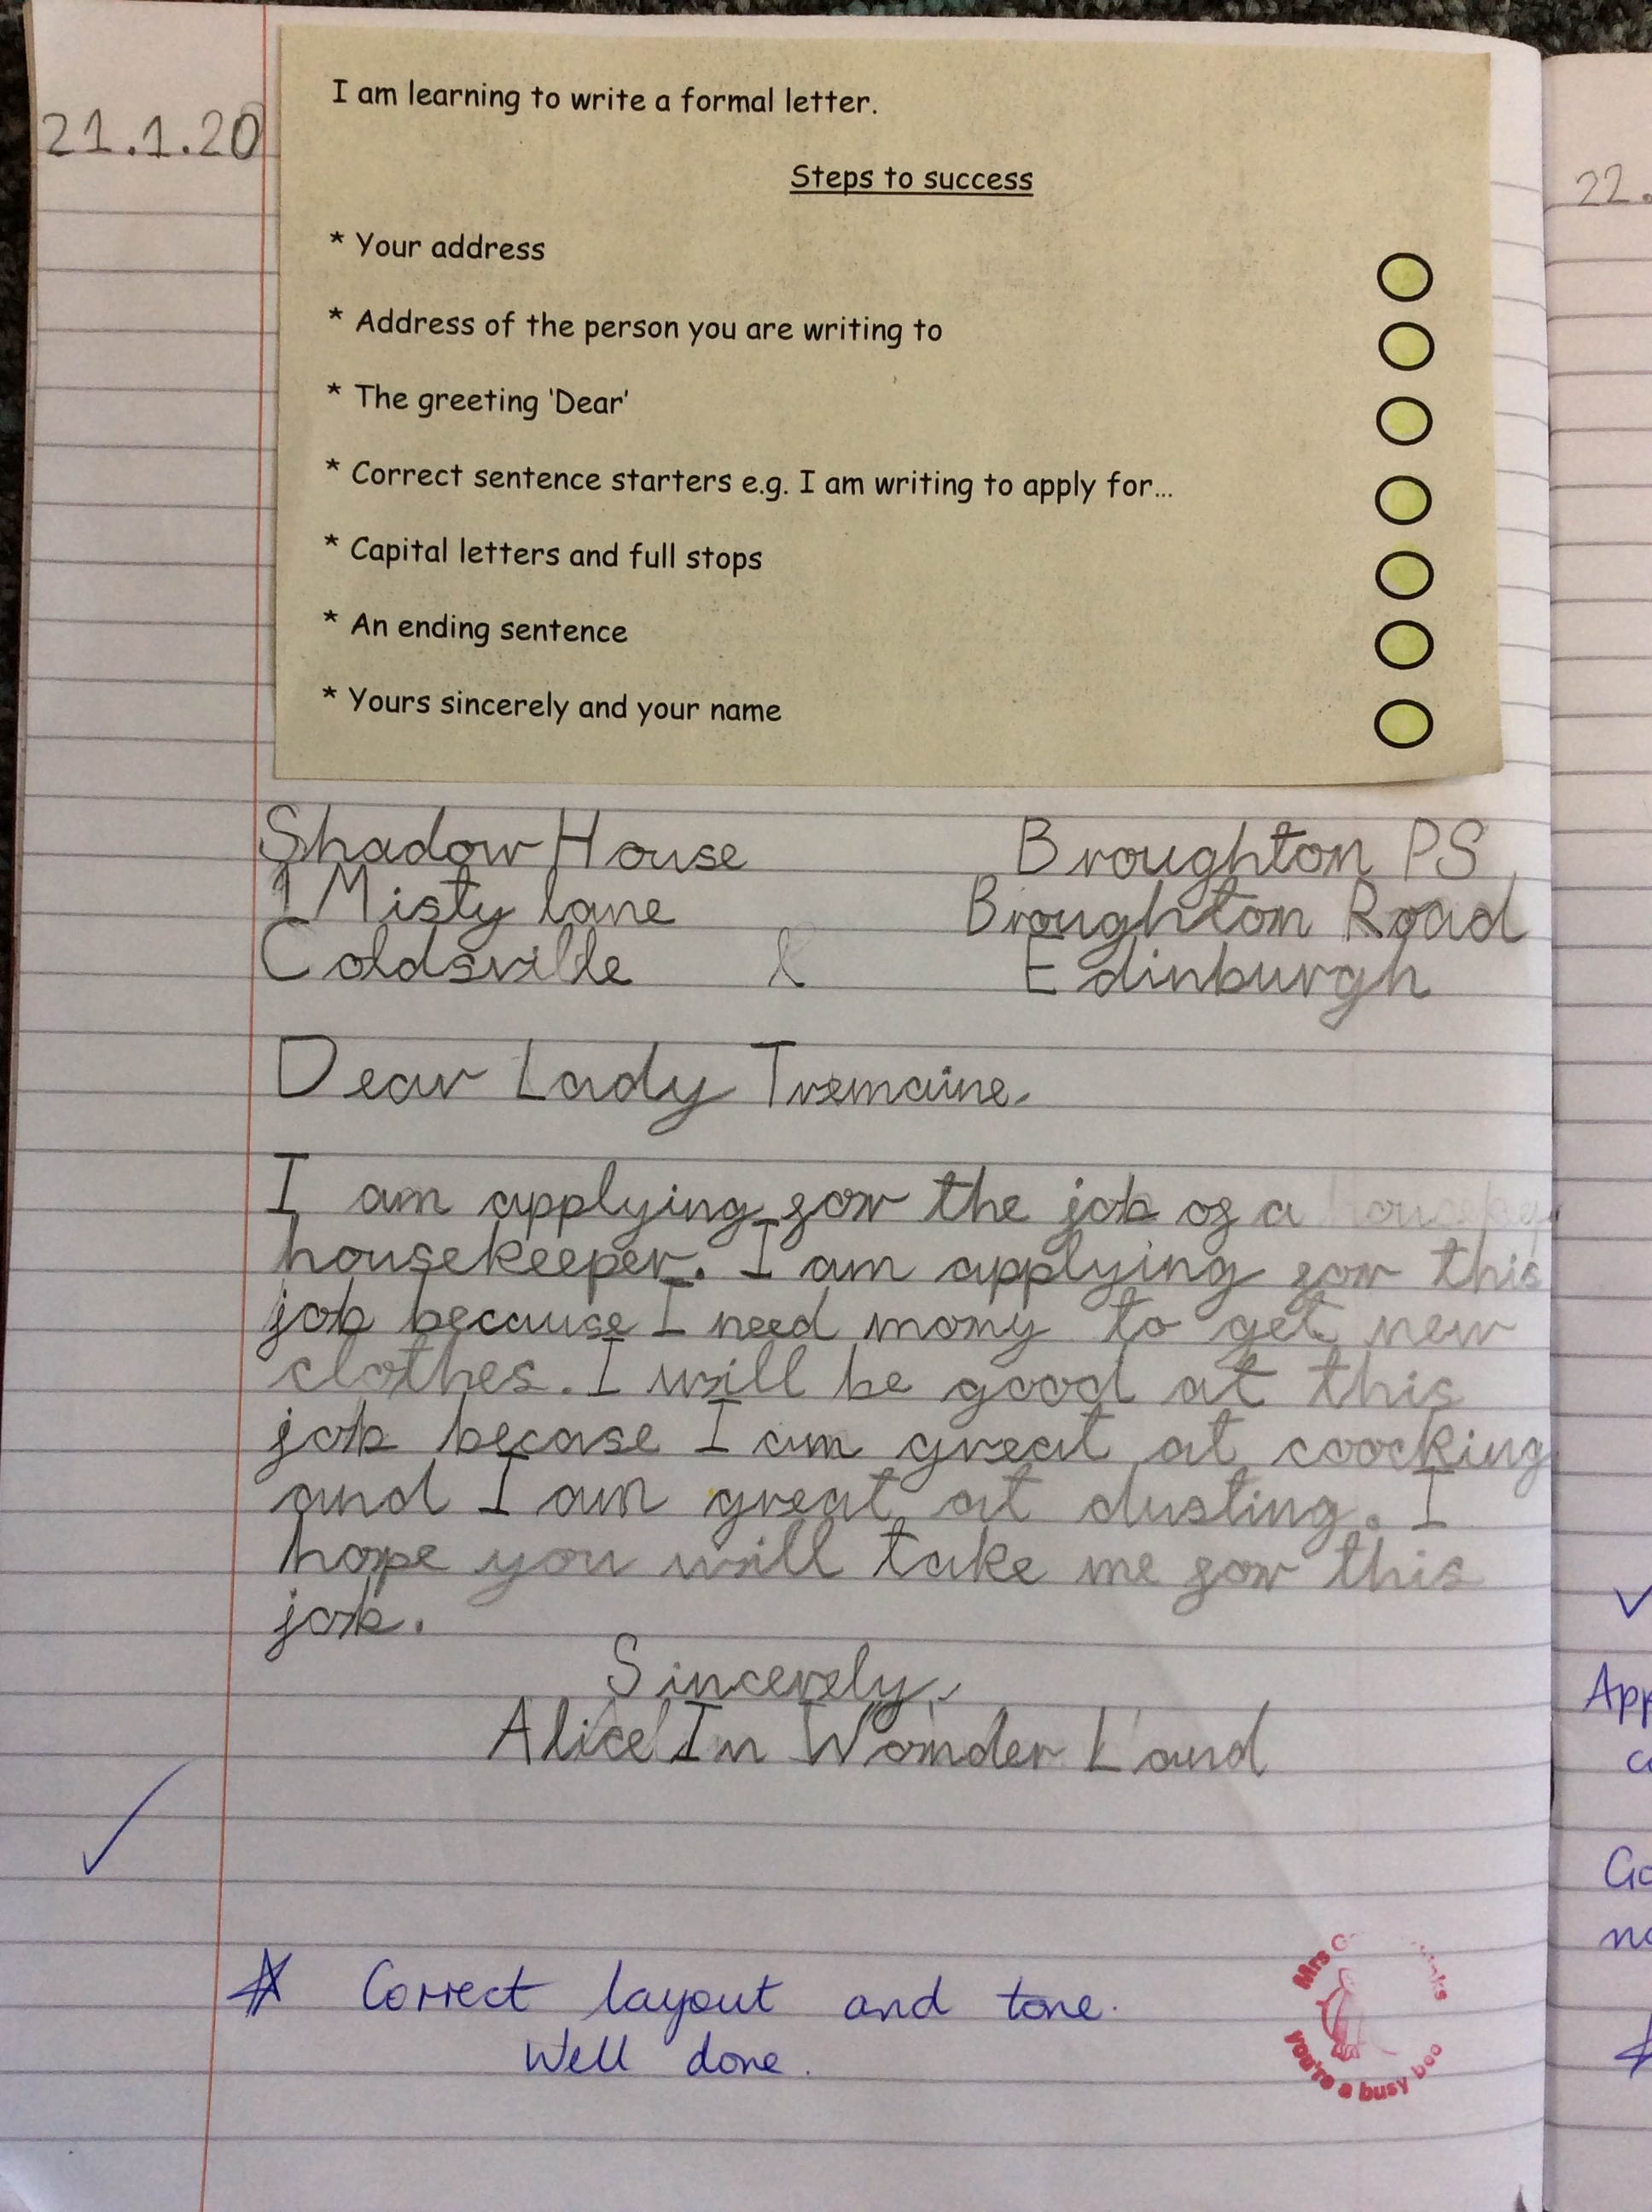 21.1.20
I am learning to write a formal letter.
Steps to success
* Your address
* Address of the person you are writing to
* The greeting 'Dear'
* Correct sentence starters e.g. I am writing to apply for...
* Capital letters and full stops
* An ending sentence
* Yours sincerely and your name
Shadow House
1 Misty lane
Coldsville
Broughton PS
Broughton Road
Edinburgh
Dear Lady Tremaine,
I am applying for the job of a
housekeeper. I am applying for this
job because I need mony to get new
clothes. I will be good at this
job becase I am great at coocking
and I am great at dusting. I
hope you will take me for this
job.
Sincerely,
Alice In Wonder Land
Correct layout and tone.
Well done.
Mrs
you're a busy bee
22.